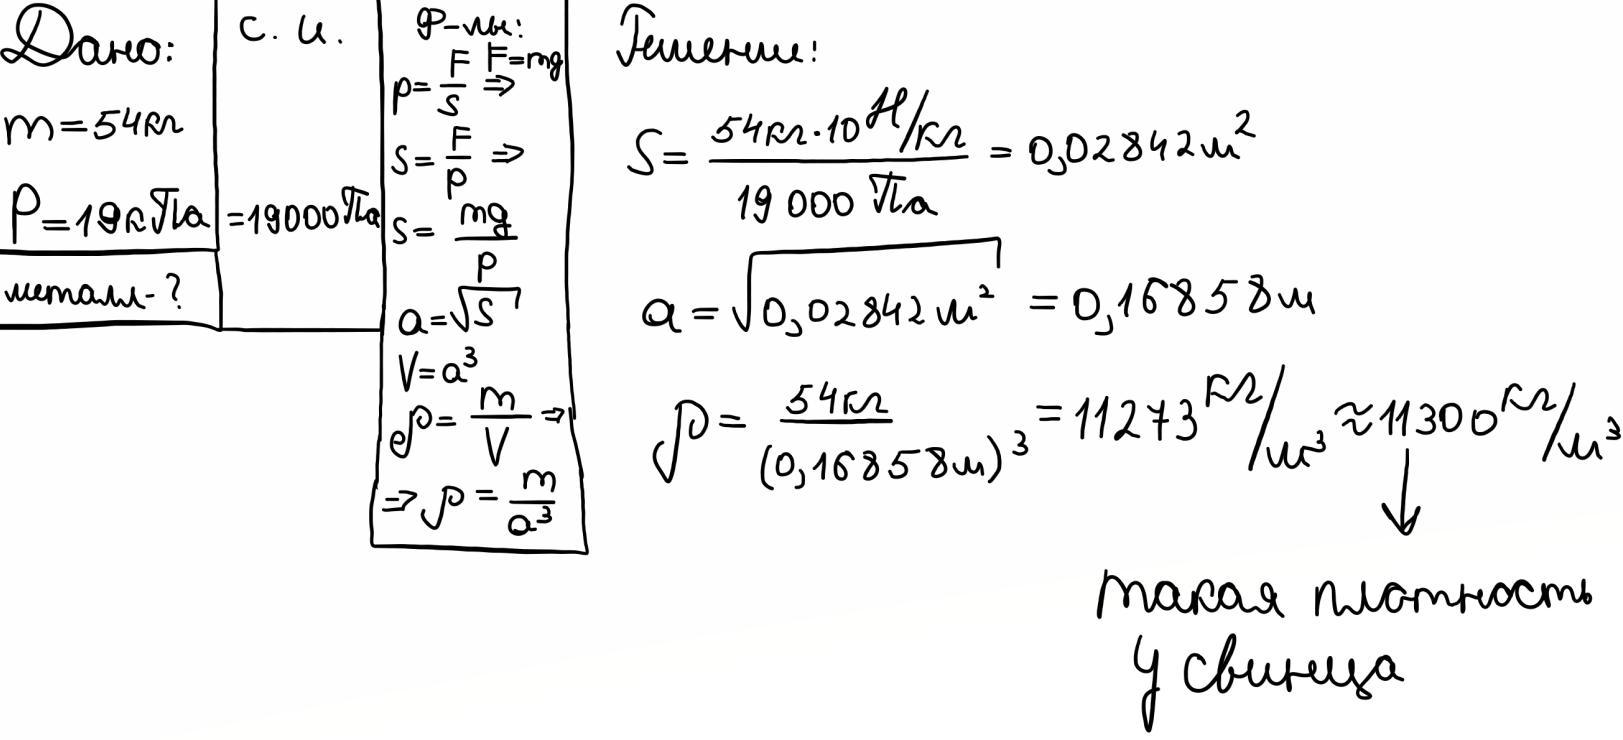 Дано:
m=54кг
P=19кПа
металл-?
С. И.
=19000Па
Ф-лы:
p=F/S ⇒ F=mg
S=F/p ⇒
S=mg/p
a=√S
V=a³
ρ=m/V ⇒
⇒ρ=m/a³
Решение:
S=54кг·10Н/кг/19 000 Па=0,02842м²
a=√0,02842м²=0,16858м
ρ=54кг/(0,16858м)³=11273кг/м³≈11300кг/м³
↓
такая плотность
у свинца